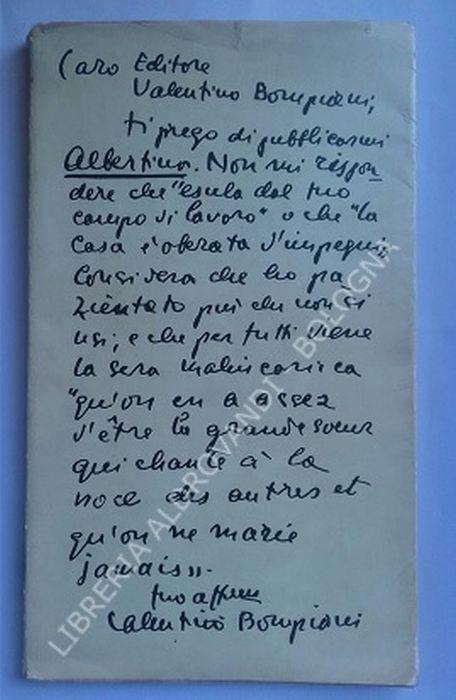 Caro Editore
Valentino Bompiani,
ti prego di pubblicarmi
Albertina. Non mi rispon
dere che "esula dal tuo
campo di lavoro" o che "la
Casa è oberata d'impegni".
Considera che ho pa
zientato più che non si
usi, e che per tutti viene
la sera malinconica
"qu'on en a assez
d'être la grande soeur
qui chante à la
noce des autres et
qu'on ne marie
jamais".
tuo aff.mo
Valentino Bompiani
LIBRERIA ALDROVANDI - BOLOGNA